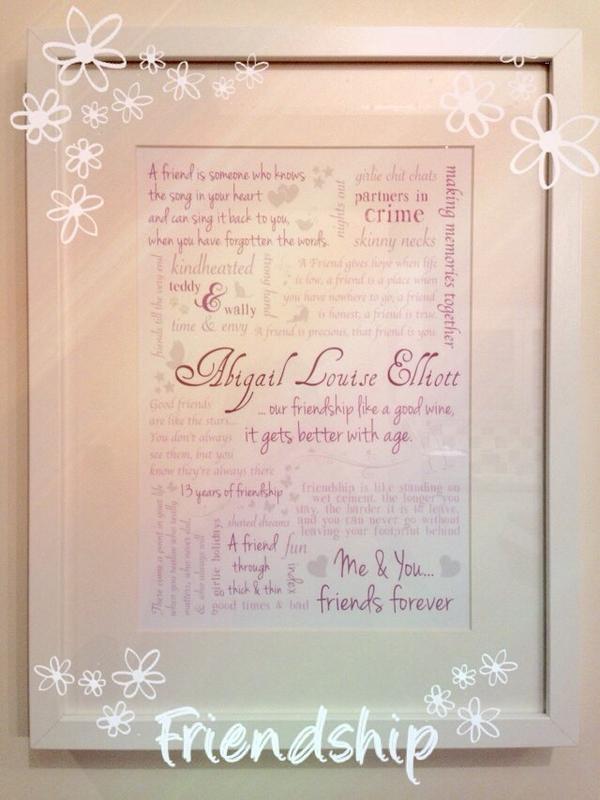 A friend is someone who knows
the song in your heart
and can sing it back to you,
when you have forgotten the words.
nights out
girlie chit chats
partners in
crime
skinny necks
making memories together
friends till the very end
kindhearted
teddy
&
wally
time & envy
strong bond
A Friend gives hope when life
is low, a friend is a place when
you have nowhere to go, a friend
is honest, a friend is true.
A friend is precious, that friend is you
Abigail Louise Elliott
... our friendship like a good wine,
it gets better with age.
Good friends
are like the stars...
You don't always
see them, but you
know they're always there
13 years of friendship
friendship is like standing on
wet cement, the longer you
stay, the harder it is to leave,
and you can never go without
leaving your footprint behind
There comes a point in your life
when you realise who really
matters, who never did,
& who always will
girlie holidays
shared dreams
A friend
through
thick & thin
fun
index
good times & bad
Me & You...
friends forever
Friendship